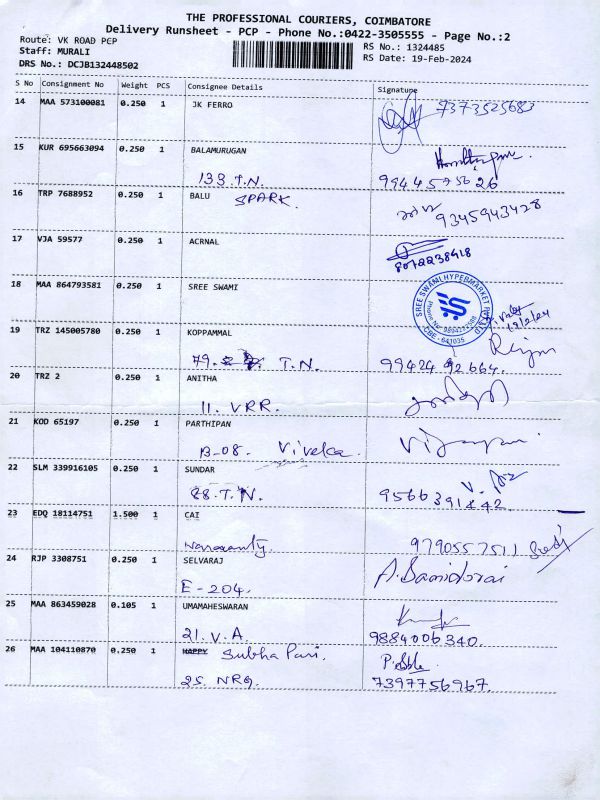 THE PROFESSIONAL COURIERS, COIMBATORE
Delivery Runsheet - PCP - Phone No.:0422-3505555 - Page No.:2
Route: VK ROAD PCP
Staff: MURALI
DRS No.: DCJB132448502
RS No.: 1324485
RS Date: 19-Feb-2024
S No Consignment No Weight PCS Consignee Details Signature
14 MAA 573100081 0.250 1 JK FERRO
7373525683
15 KUR 695663094 0.250 1 BALAMURUGAN
133.T.N. 9944575626
16 TRP 7688952 0.250 1 BALU SPARK.
9345943428
17 VJA 59577 0.250 1 ACRNAL
8072238418
18 MAA 864793581 0.250 1 SREE SWAMI
SREE SWAMI HYPERMARKET
CBE - 641035
19/2/24
19 TRZ 145005780 0.250 1 KOPPAMMAL
79. T.N. 99424 92664.
20 TRZ 2 0.250 1 ANITHA
11. VRR.
21 KOD 65197 0.250 1 PARTHIPAN
B-08. Viveka.
22 SLM 339916105 0.250 1 SUNDAR
88.T.N. 9566391442
23 EDQ 18114751 1.500 1 CAI
9790557511
24 RJP 3308751 0.250 1 SELVARAJ
E-204. A.Samidorai
25 MAA 863459028 0.105 1 UMAMAHESWARAN
21. V.A. 9884006340.
26 MAA 104110870 0.250 1 HAPPY Subha Pari.
25. NRG. 7397756967.